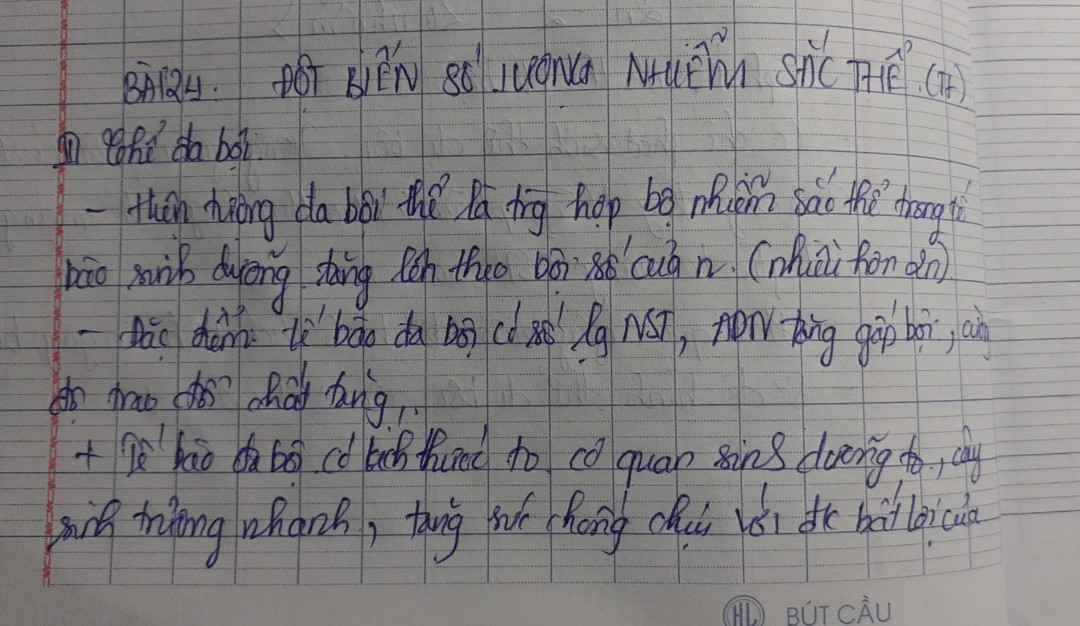 BÀI 24. ĐỘT BIẾN SỐ LƯỢNG NHIỄM SẮC THỂ. (TT)
III Thể đa bội.
- Hiện tượng đa bội thể là trg hợp bộ nhiễm sắc thể trong tế
bào sinh dưỡng tăng lên theo bội số của n. (nhiều hơn 2n)
- Đặc điểm: tế bào đa bội có số lg NST, ADN tăng gấp bội, cường
độ trao đổi chất tăng,..
+ Tế bào đa bội có kích thước to, cơ quan sinh dưỡng to, cây
sinh trưởng nhanh, tăng sức chống chịu với đk bất lợi của
HL BÚT CẦU